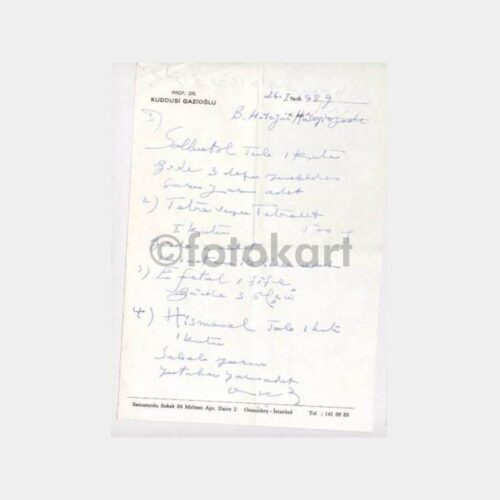 PROF. DR.
KUDDUSİ GAZİOĞLU
26. I 989
B. Hüseyin Hüseyinzade
1)
Salbutol Tabl 1 kutu
Günde 3 defa yemekten
sonra yarım adet
2) Tetra veya Tetralet
1 kutu
©fotokart
3) Efetal 1 şişe
Günde 3 ölçü
4) Hismanal Tabl 1 kutu
1 kutu
Sabah yarım
yatarken yarım adet
Samanyolu Sokak 84 Meltem Apt. Daire 2 Osmanbey - İstanbul Tel : 141 09 83